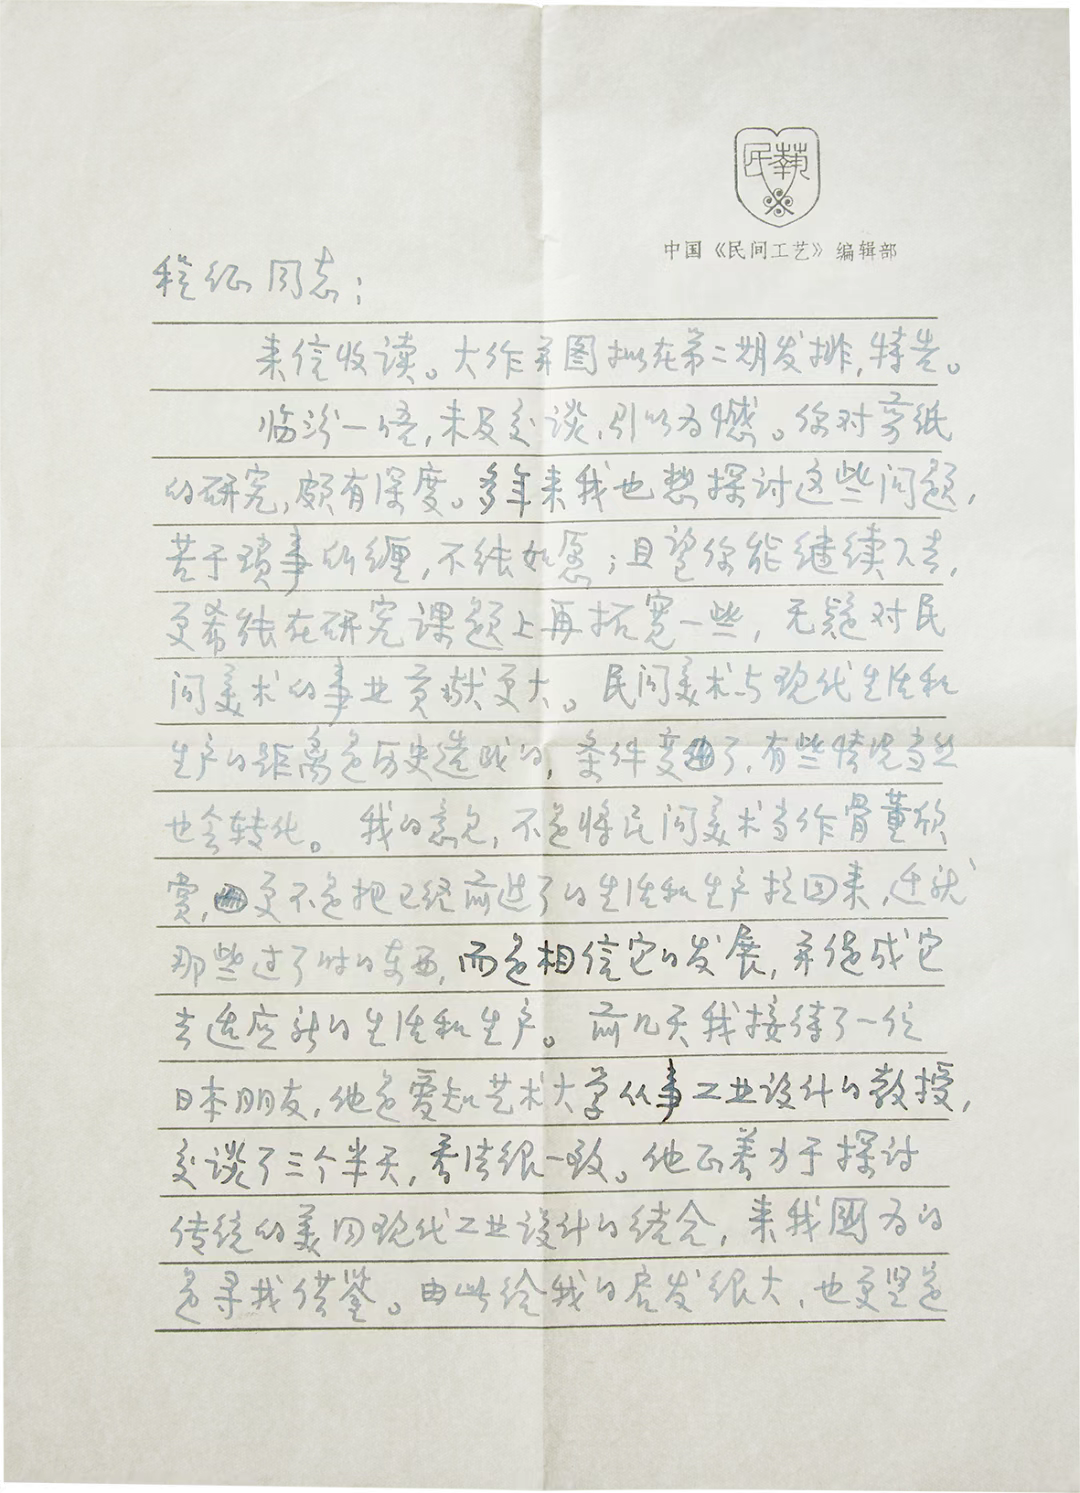 民艺
中国《民间工艺》编辑部
程征同志：
来信收读。大作并图拟在第二期发排，特告。
临汾一晤，未及交谈，引以为憾。你对剪纸
的研究，颇有深度。多年来我也想探讨这些问题，
苦于琐事所缠，不能如愿；且望你能继续下去，
更希能在研究课题上再拓宽一些，无疑对民
间美术的事业贡献更大。民间美术与现代生活和
生产的距离是历史造成的，条件变了，有些情况当然
也会转化。我的意见，不是将民间美术当作骨董欣
赏，更不是把已经前进了的生活和生产拉回来，迁就
那些过了时的东西，而是相信它的发展，并促成它
去适应新的生活和生产。前几天我接待了一位
日本朋友，他是爱知艺术大学从事工业设计的教授，
交谈了三个半天，看法很一致。他正着力于探讨
传统的美同现代工业设计的结合，来我国为的
是寻找借鉴。由此给我的启发很大，也更坚定